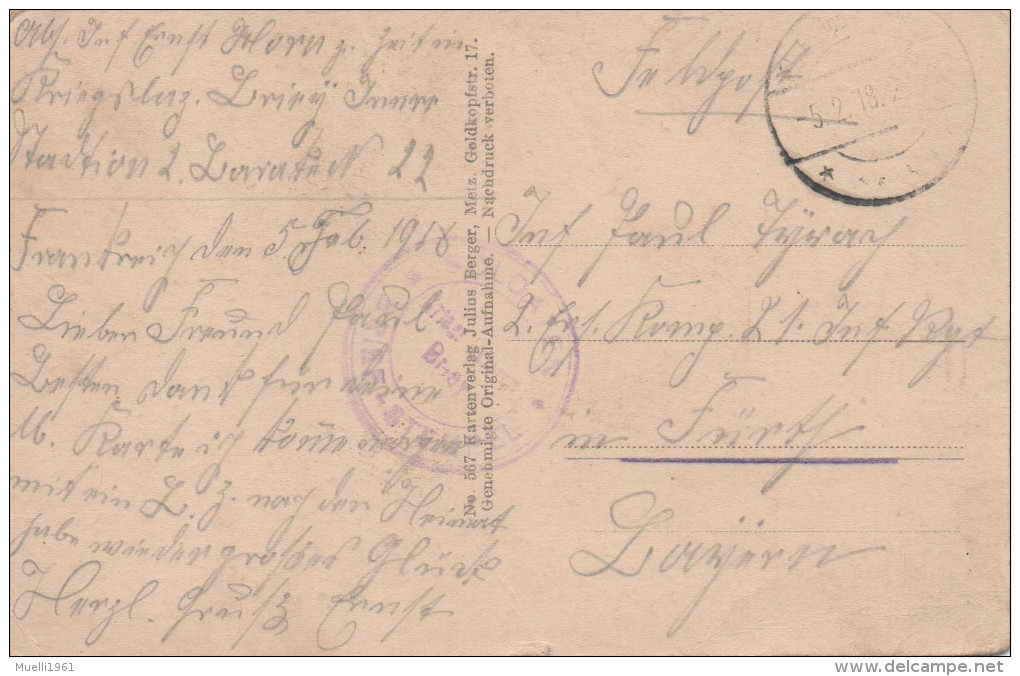 Abs. Inf Ernst Horn z. Zeit in
Kriegslaz. Briey Innere
Stadtion 2. Baracke N 22
Frankreich den 5. Feb. 1918
Lieber Freund Paul
Besten Dank für deine
lb. Karte ich komme morgen
mit ein L. Z. nach der Heimat
habe wieder großes Glück
Herzl. Gruß Ernst
No. 567 Kartenverlag Julius Berger, Metz, Goldkopfstr. 17.
Genehmigte Original-Aufnahme. — Nachdruck verboten.
Feldpost
5.2.18
Inf Paul
2. Ers. Komp. 21. Inf. Rgt
in Fürth
Bayern
Muelli1961
www.delcampe.net